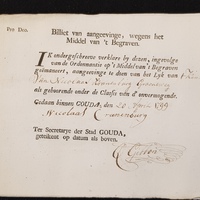 Pro Deo.
Billiet van aangeevinge, wegens het
Middel van 't Begraven.
IK ondergeschreve verklare by dezen, ingevolge
van de Ordonnantie op 't Middel van 't Begraven
geëmaneert, aangeevinge te doen van het Lyk van
als gehoorende onder de Classis van d' onvermogende.
Gedaan binnen GOUDA, den 20
Nicolaas Cranenburg
Ter Secretarye der Stad GOUDA,
geteikent op datum als boven.